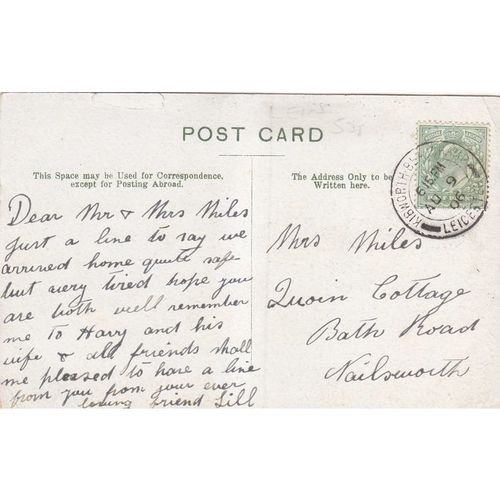 POST CARD
This Space may be Used for Correspondence,
except for Posting Abroad.
The Address Only to be
Written here.
KIBWORTH
LEICES
6 15 PM
AU 9
06
Dear Mr & Mrs Miles
just a line to say we
arrived home quite safe
but very tired hope you
are both well remember
me to Harry and his
wife & all friends shall
me pleased to have a line
from you from your ever
loving friend Lill
Mrs Miles
Quoin Cottage
Bath Road
Nailsworth